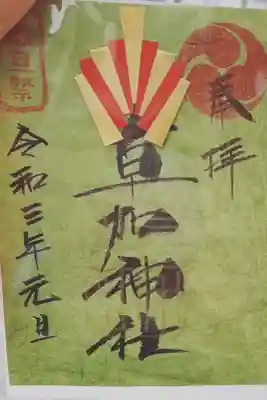 奉拝
草加神社
令和三年元旦